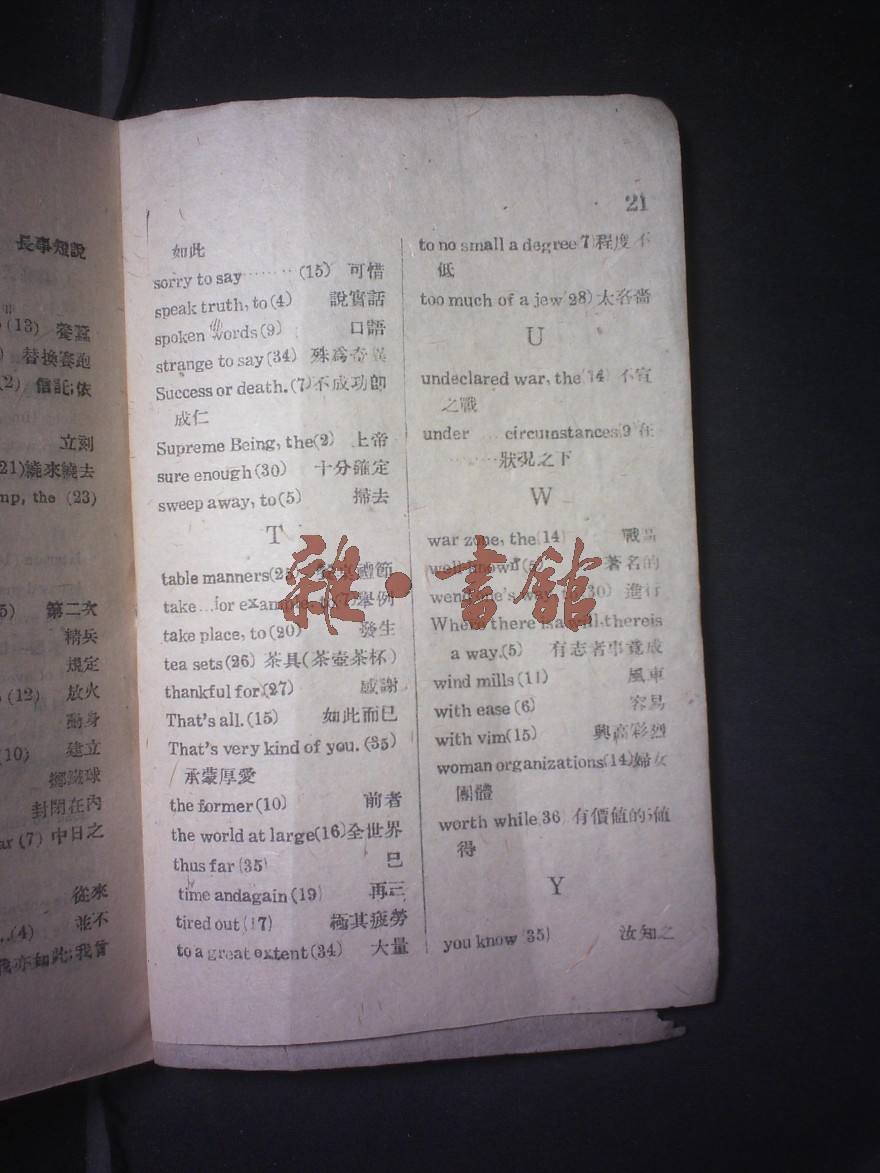 長事短說
(13) 養蠶
替換賽跑
(2) 信託;依
立刻
21)繞來繞去
mp, the (23)
5) 第二次
精兵
規定
(12) 放火
動身
(10) 建立
擲鐵球
封閉在內
ar (7) 中日之
從來
..(4) 並不
我亦如此;我曾
21
如此
sorry to say········(15) 可惜
speak truth, to(4) 說實話
spoken words(9) 口語
strange to say(34) 殊爲奇異
Success or death.(7)不成功卽
成仁
Supreme Being, the(2) 上帝
sure enough(30) 十分確定
sweep away, to(5) 掃去
T
table manners(25) 禮節
take...for example, to(7)舉例
take place, to(20) 發生
tea sets(26) 茶具(茶壺茶杯)
thankful for(27) 感謝
That's all.(15) 如此而巳
That's very kind of you.(35)
承蒙厚愛
the former(10) 前者
the world at large(16)全世界
thus far(35) 巳
time andagain(19) 再三
tired out(17) 極其疲勞
to a great extent(34) 大量
to no small a degree 7)程度不
低
too much of a jew 28)太吝嗇
U
undeclared war, the 14) 不宣
之戰
under ... circumstances 9 在
········狀況之下
W
war zone, the(14) 戰區
well known(5) 著名的
wend one's way, to(30) 進行
Where there is a will, thereis
a way.(5) 有志者事竟成
wind mills(11) 風車
with ease(6) 容易
with vim(15) 興高彩烈
woman organizations(14)婦女
團體
worth while 36 有價値的;値
得
Y
you know 35) 汝知之
雜·書館